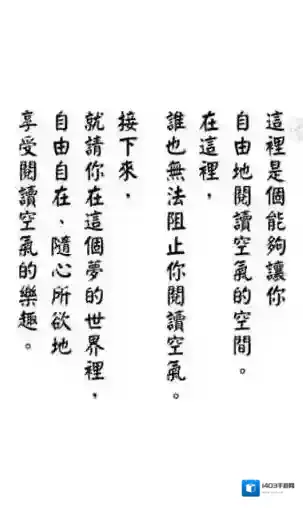 這裡是個能夠讓你
自由地閱讀空氣的空間。
在這裡，
誰也無法阻止你閱讀空氣。
接下來，
就請你在這個夢的世界裡，
自由自在、隨心所欲地
享受閱讀空氣的樂趣。
1403手游网